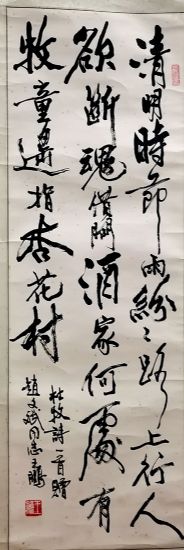 清明時節雨紛〻路上行人
欲断魂借問酒家何處有
牧童遥指杏花村
杜牧詩一首贈
趙文斌同志